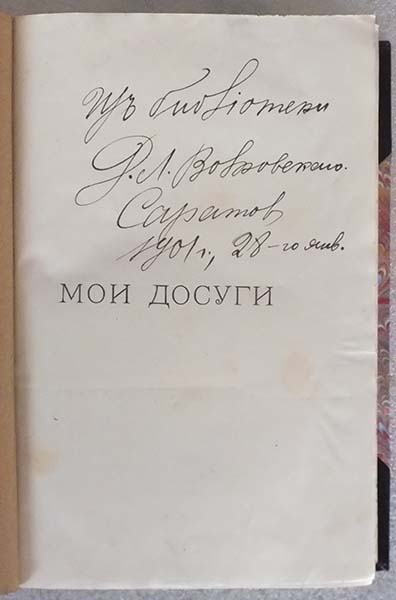 Изъ библіотеки
Д. Л. Вовровскаго.
Саратов
1901 г., 28-го янв.
МОИ ДОСУГИ